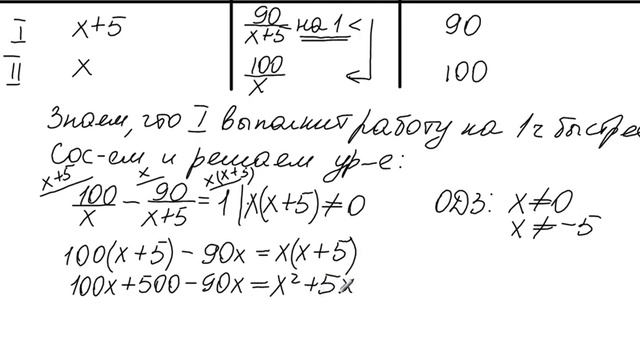 I x+5 90/(x+5) на 1 < 90
II x 100/x 100
Знаем, что I выполнит работу на 1ч быстрее
Сос-ем и решаем ур-е:
x+5 x x(x+5)
100/x − 90/(x+5) = 1 | x(x+5) ≠ 0 ОДЗ: x ≠ 0
x ≠ −5
100(x+5) − 90x = x(x+5)
100x+500−90x = x²+5x